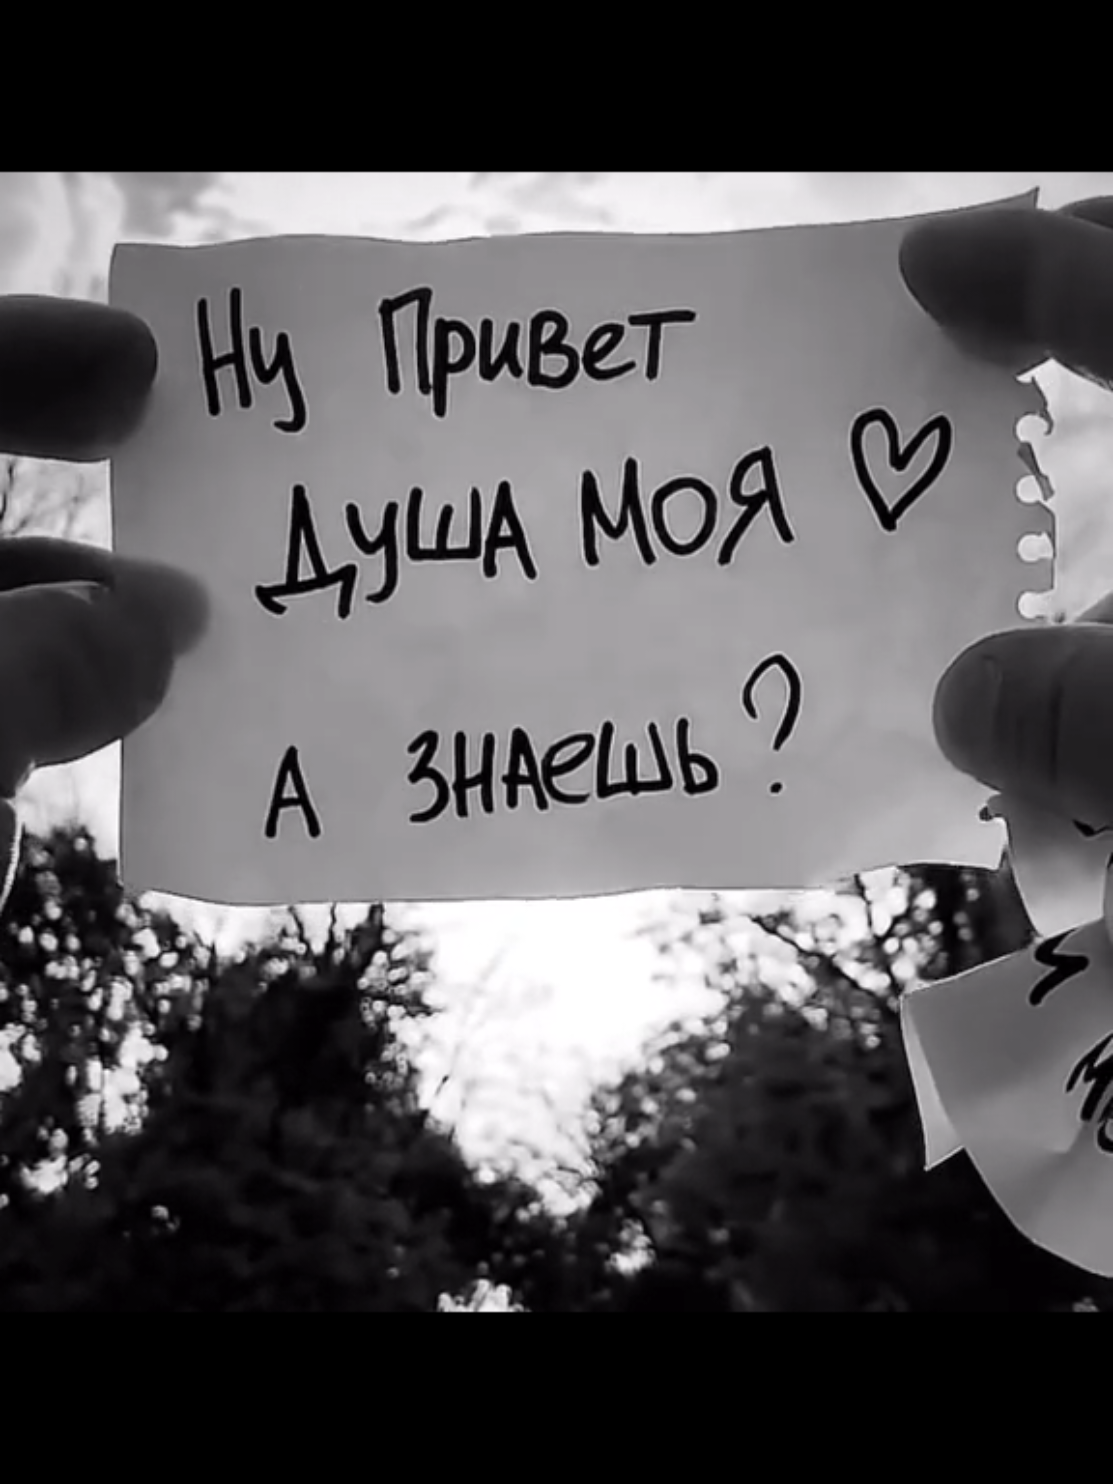 Ну Привет
Душа моя ♡
А знаешь?